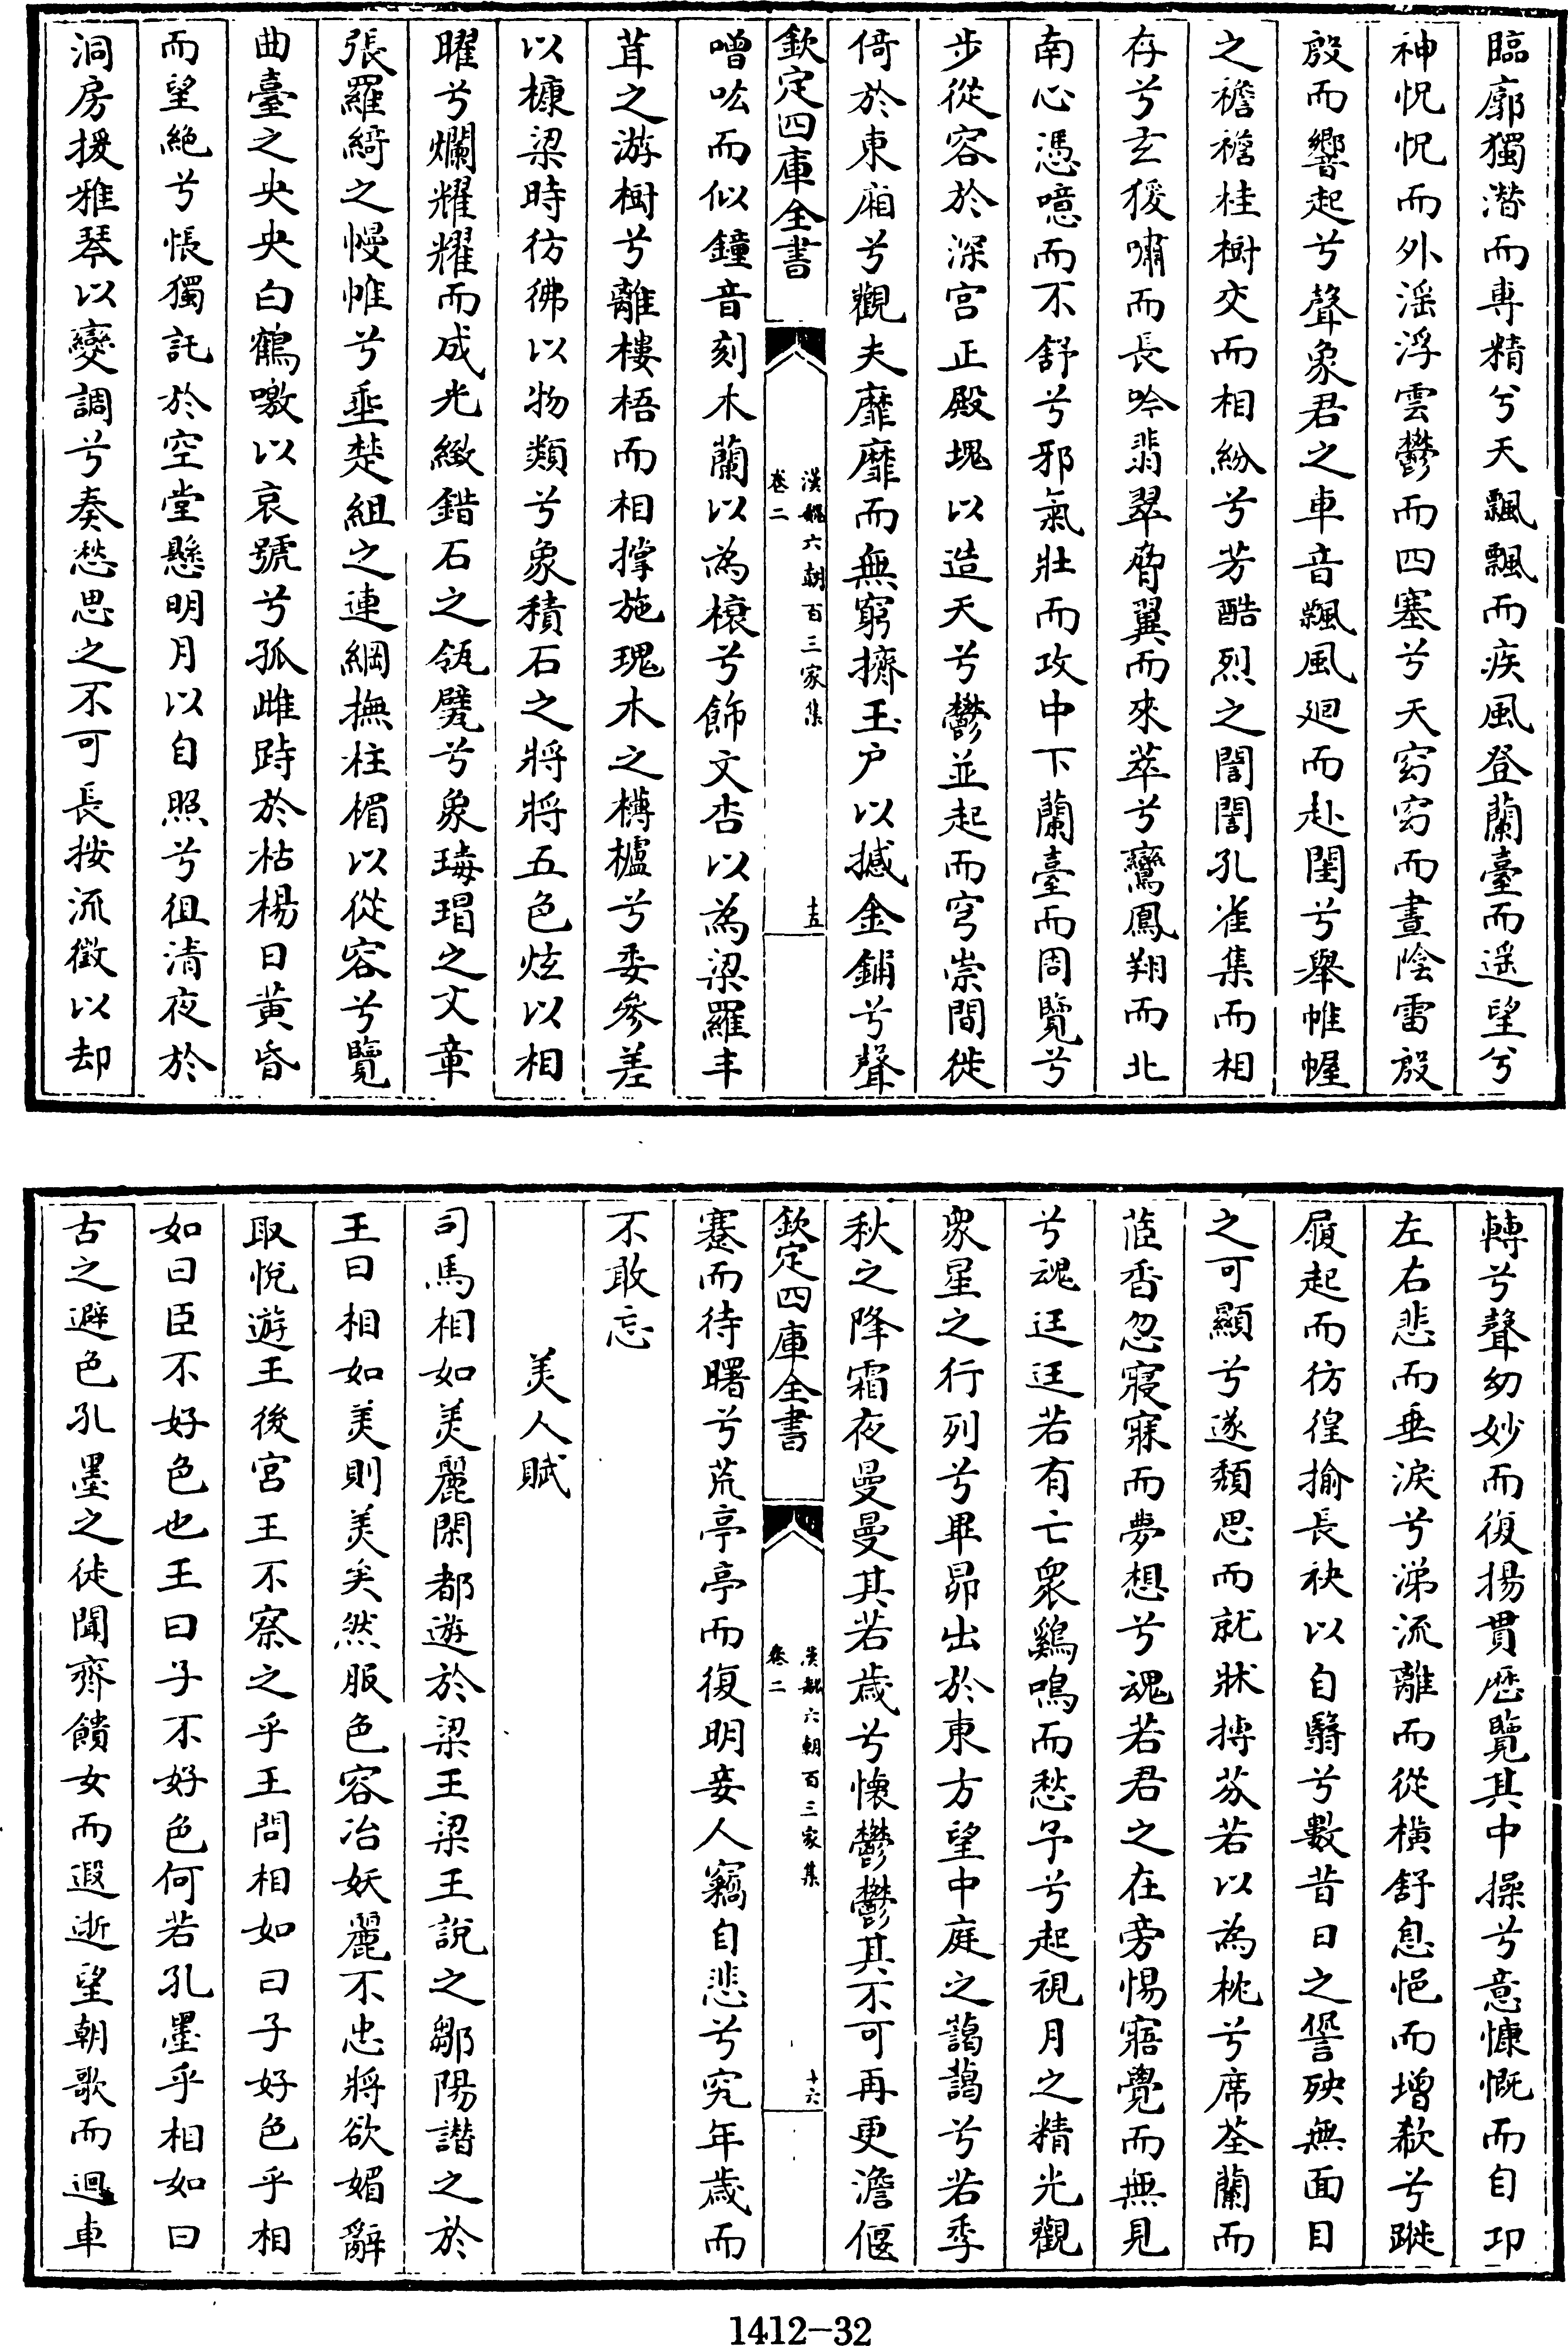 臨廓獨潛而専精兮天飄飄而疾風登蘭臺而遥望兮
神怳怳而外滛浮雲鬱而四塞兮天窈窈而晝陰雷殷
殷而響起兮聲象君之車音飄風廻而赴閨兮舉帷幄
之襜襜桂樹交而相紛兮芳酷烈之誾誾孔雀集而相
存兮玄猨嘯而長吟翡翠脅翼而來萃兮鸞鳳翔而北
南心憑噫而不舒兮邪氣壯而攻中下蘭臺而周覽兮
步從容於深宫正殿塊以造天兮鬱並起而穹崇間徙
倚於東廂兮觀夫靡靡而無窮擠玉户以撼金鋪兮聲
欽定四庫全書
漢魏六朝百三家集
卷二
十五
噌吰而似鐘音刻木蘭以為榱兮飾文杏以為梁羅丰
茸之游樹兮離樓梧而相撑施瑰木之欂櫨兮委參差
以槺梁時彷彿以物類兮象積石之將將五色炫以相
曜兮爛耀耀而成光緻錯石之瓴甓兮象瑇瑁之文章
張羅綺之幔帷兮垂楚組之連綱撫柱楣以從容兮覽
曲臺之央央白鶴噭以哀號兮孤雌跱於枯楊日黄昏
而望絶兮悵獨託於空堂懸明月以自照兮徂清夜於
洞房援雅琴以變調兮奏愁思之不可長按流徵以却
轉兮聲幼妙而復揚貫歴覽其中操兮意慷慨而自卬
左右悲而垂淚兮涕流離而從橫舒息悒而增欷兮蹝
履起而彷徨揄長袂以自翳兮數昔日之諐殃無面目
之可顯兮遂頽思而就牀摶芬若以為枕兮席荃蘭而
茝香忽寢寐而夢想兮魂若君之在旁惕寤覺而無見
兮魂迋迋若有亡衆鷄鳴而愁予兮起視月之精光觀
衆星之行列兮畢昴出於東方望中庭之藹藹兮若季
秋之降霜夜曼曼其若歳兮懷鬱鬱其不可再更澹偃
欽定四庫全書
漢魏六朝百三家集
卷二
十六
蹇而待曙兮荒亭亭而復明妾人竊自悲兮究年歳而
不敢忘
美人賦
司馬相如美麗閑都遊於梁王梁王說之鄒陽譖之於
王曰相如美則美矣然服色容冶妖麗不忠將欲媚辭
取悅遊王後宮王不察之乎王問相如曰子好色乎相
如曰臣不好色也王曰子不好色何若孔墨乎相如曰
古之避色孔墨之徒聞齊饋女而遐逝望朝歌而迴車
1412-32